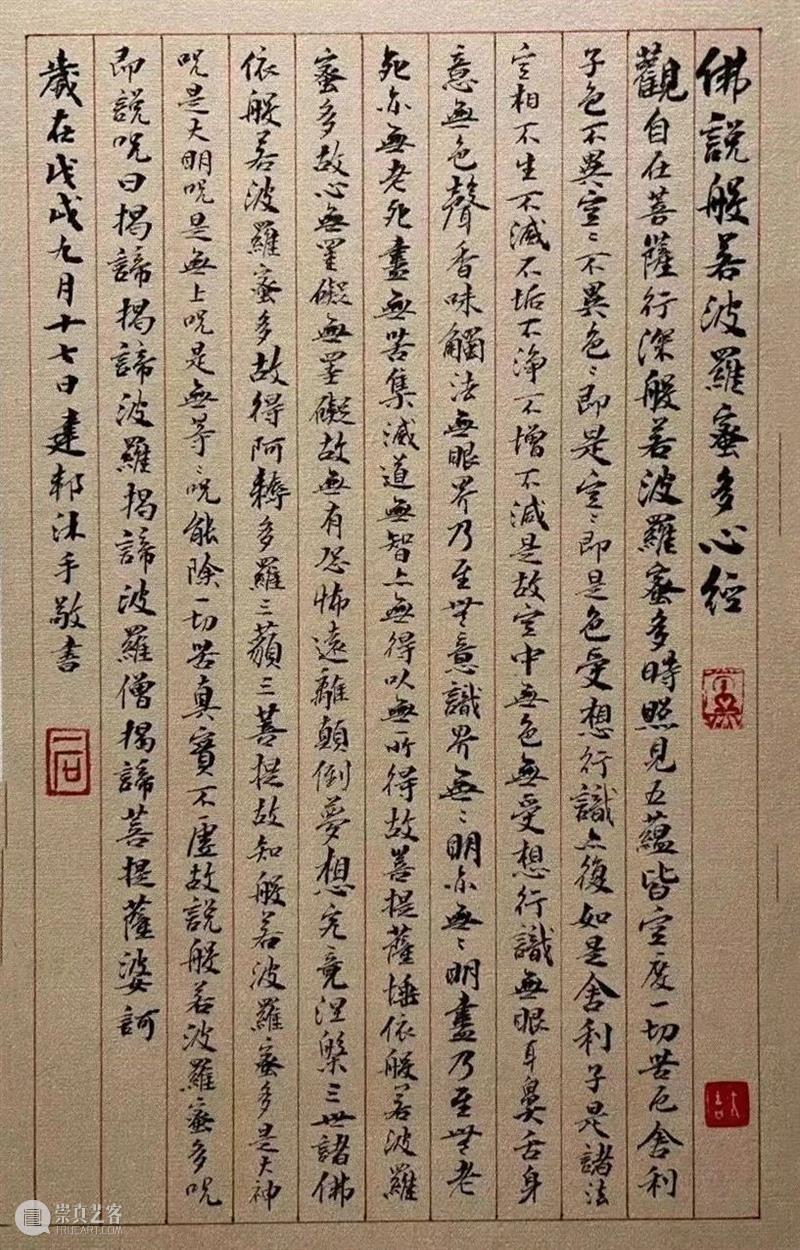 佛說般若波羅蜜多心經
觀自在菩薩行深般若波羅蜜多時照見五蘊皆空度一切苦厄舍利
子色不異空〻不異色〻即是空〻即是色受想行識亦復如是舍利子是諸法
空相不生不滅不垢不淨不增不減是故空中無色無受想行識無眼耳鼻舌身
意無色聲香味觸法無眼界乃至无意識界無〻明亦無〻明盡乃至无老
死亦無老死盡無苦集滅道無智亦無得以無所得故菩提薩埵依般若波羅
蜜多故心無罣礙無罣礙故無有恐怖遠離顛倒夢想究竟涅槃三世諸佛
依般若波羅蜜多故得阿耨多羅三藐三菩提故知般若波羅蜜多是大神
呪是大明呪是無上呪是無等〻呪能除一切苦真實不虛故說般若波羅蜜多呪
即說呪曰揭諦揭諦波羅揭諦波羅僧揭諦菩提薩婆訶
歲在戊戌九月十七日建邦沐手敬書
崇真艺客
TRUEART.COM